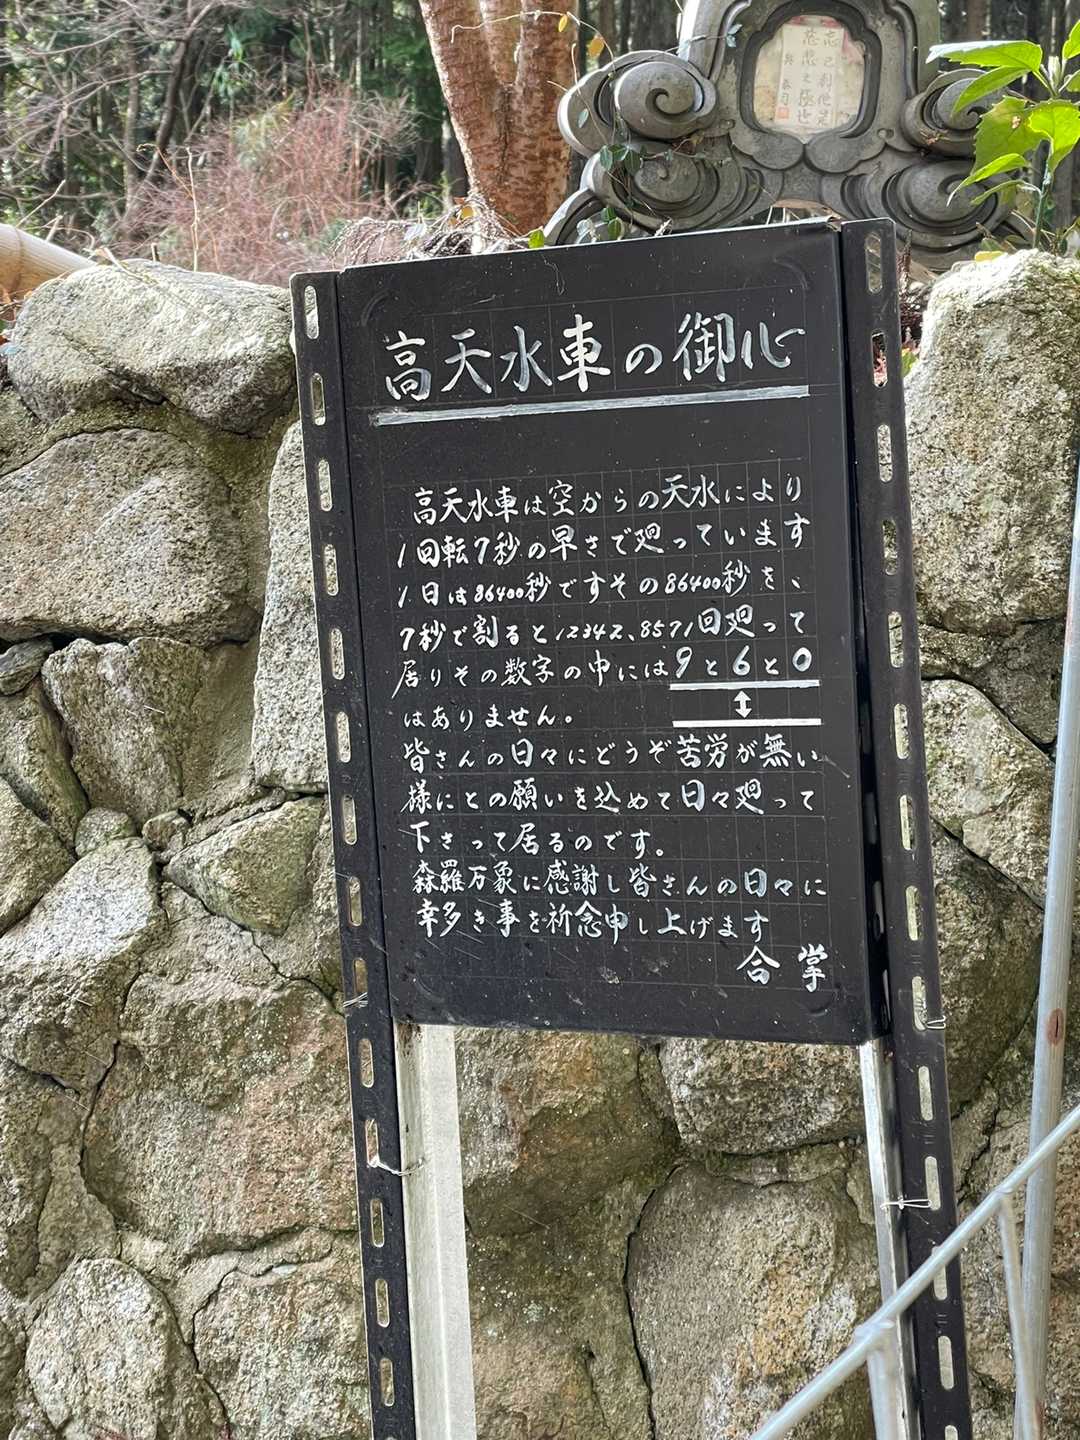 高天水車の御心
高天水車は空からの天水により
1回転7秒の早さで廻っています
1日は86400秒ですその86400秒を、
7秒で割ると12342、8571回廻って
居りその数字の中には9と6と0
↕
はありません。
皆さんの日々にどうぞ苦労が無い
様にとの願いを込めて日々廻って
下さって居るのです。
森羅万象に感謝し皆さんの日々に
幸多き事を祈念申し上げます
合掌
忘己利他
慈悲之極也